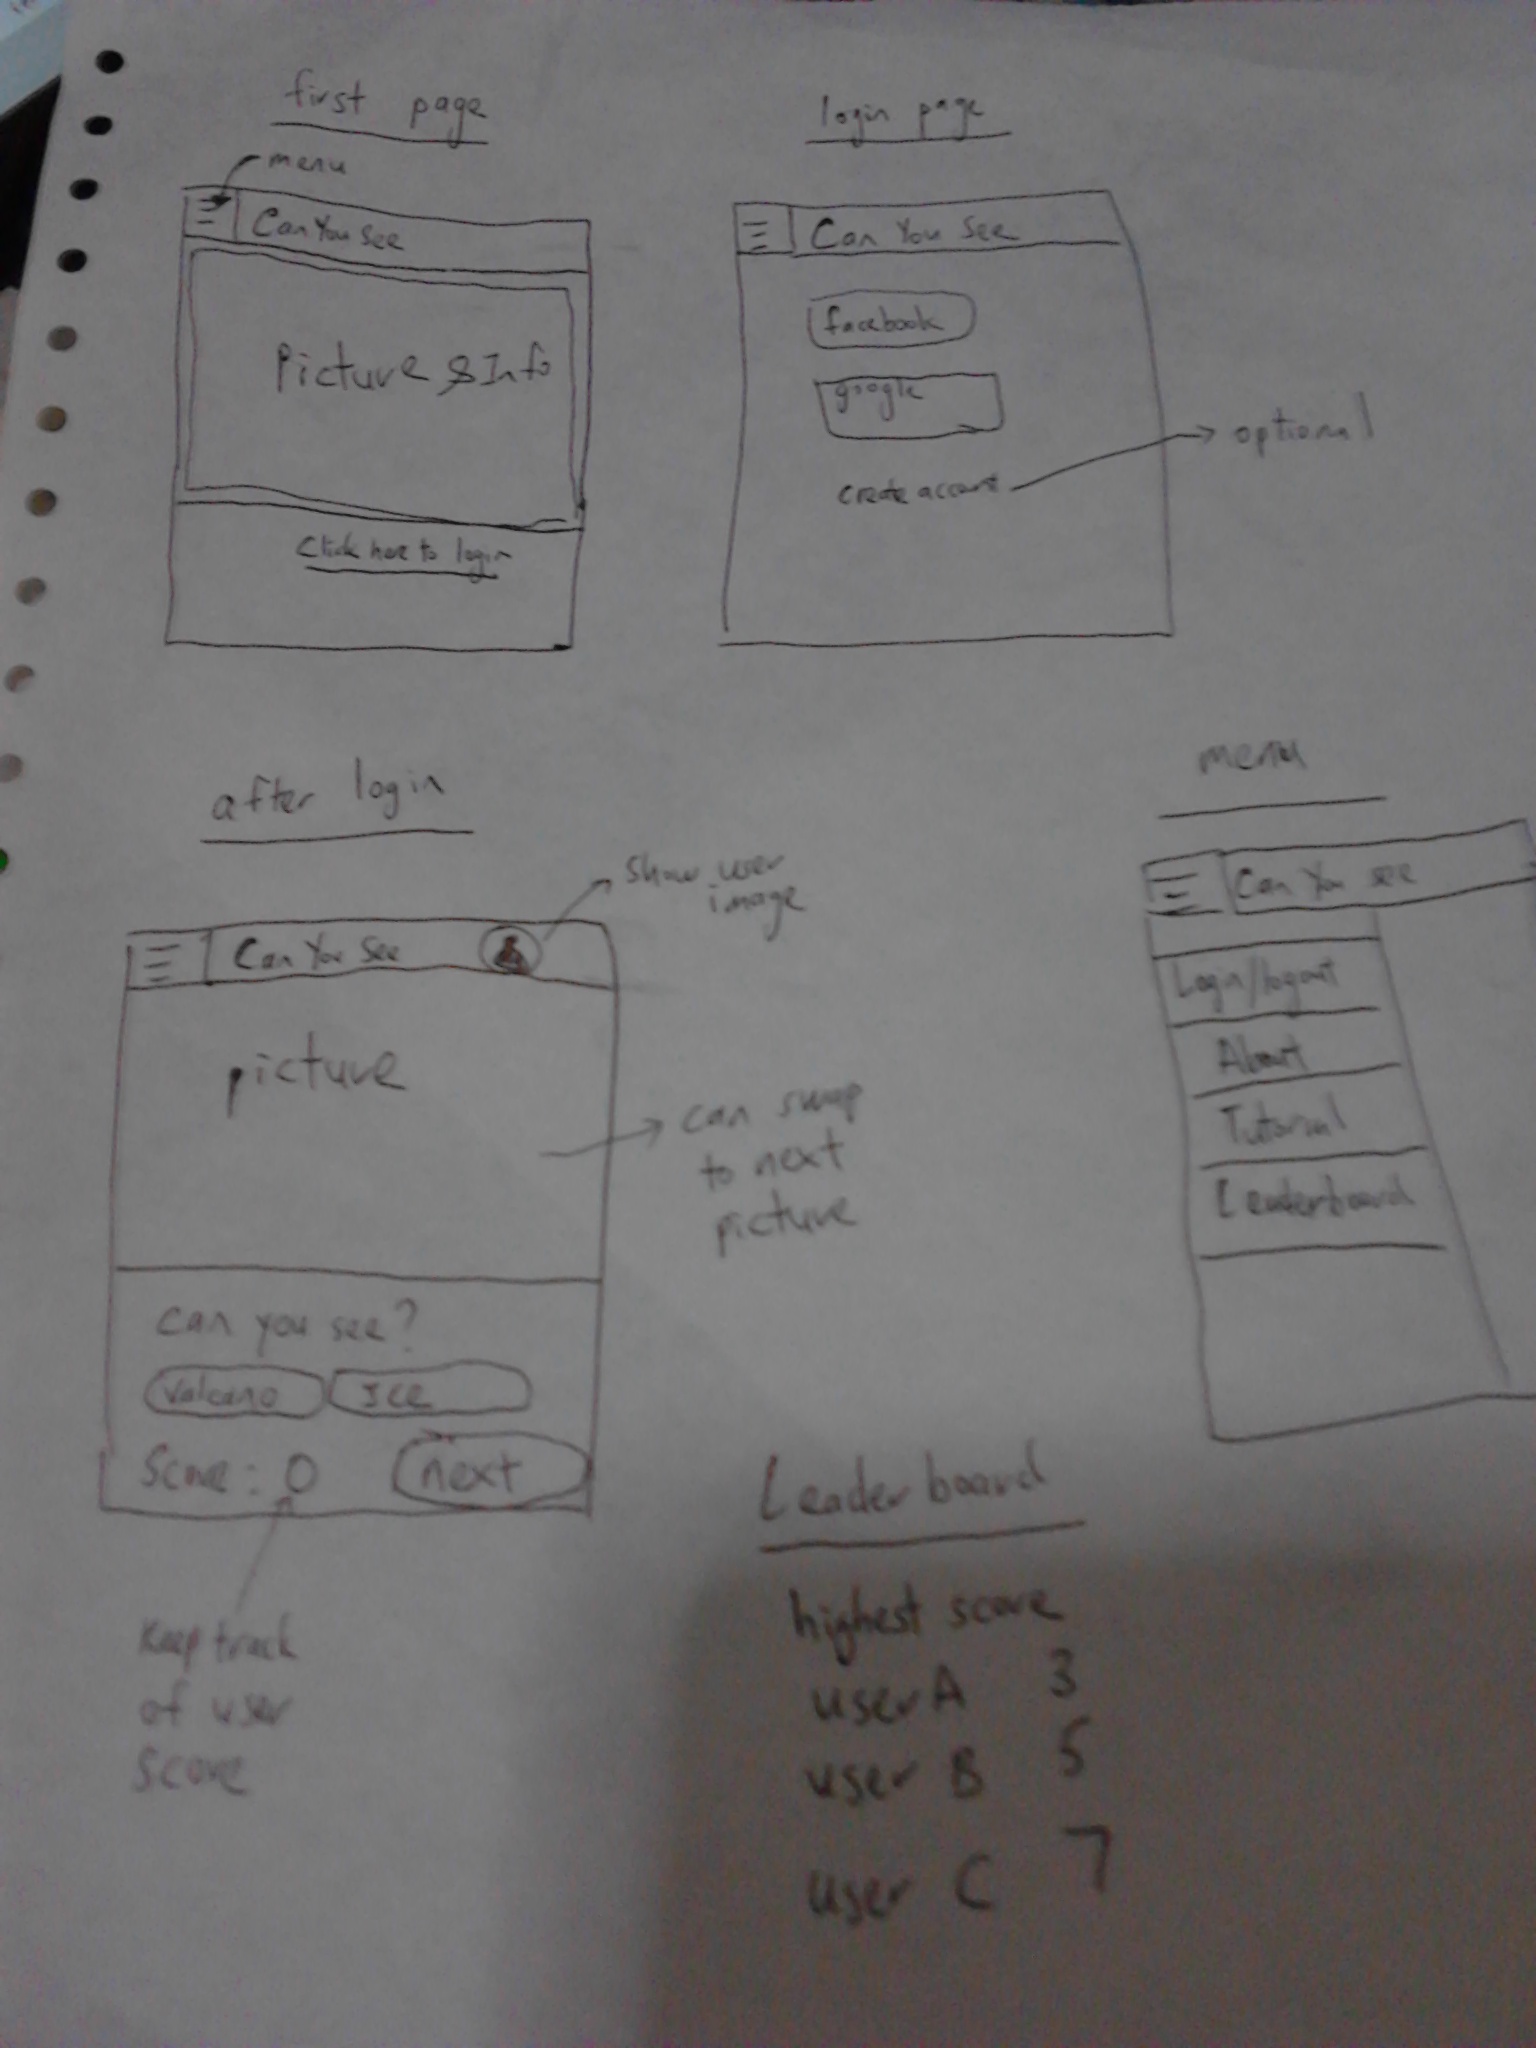 first page
menu
Can You See
Picture & Info
Click here to login
login page
Can You See
facebook
google
create account
optional
after login
show user
image
Can You See
picture
can swap
to next
picture
can you see?
Valcano
Ice
Score: 0
next
Keep track
of user
score
menu
Can You see
Login/logout
About
Tutorial
Leaderboard
Leader board
highest score
user A 3
user B 5
user C 7